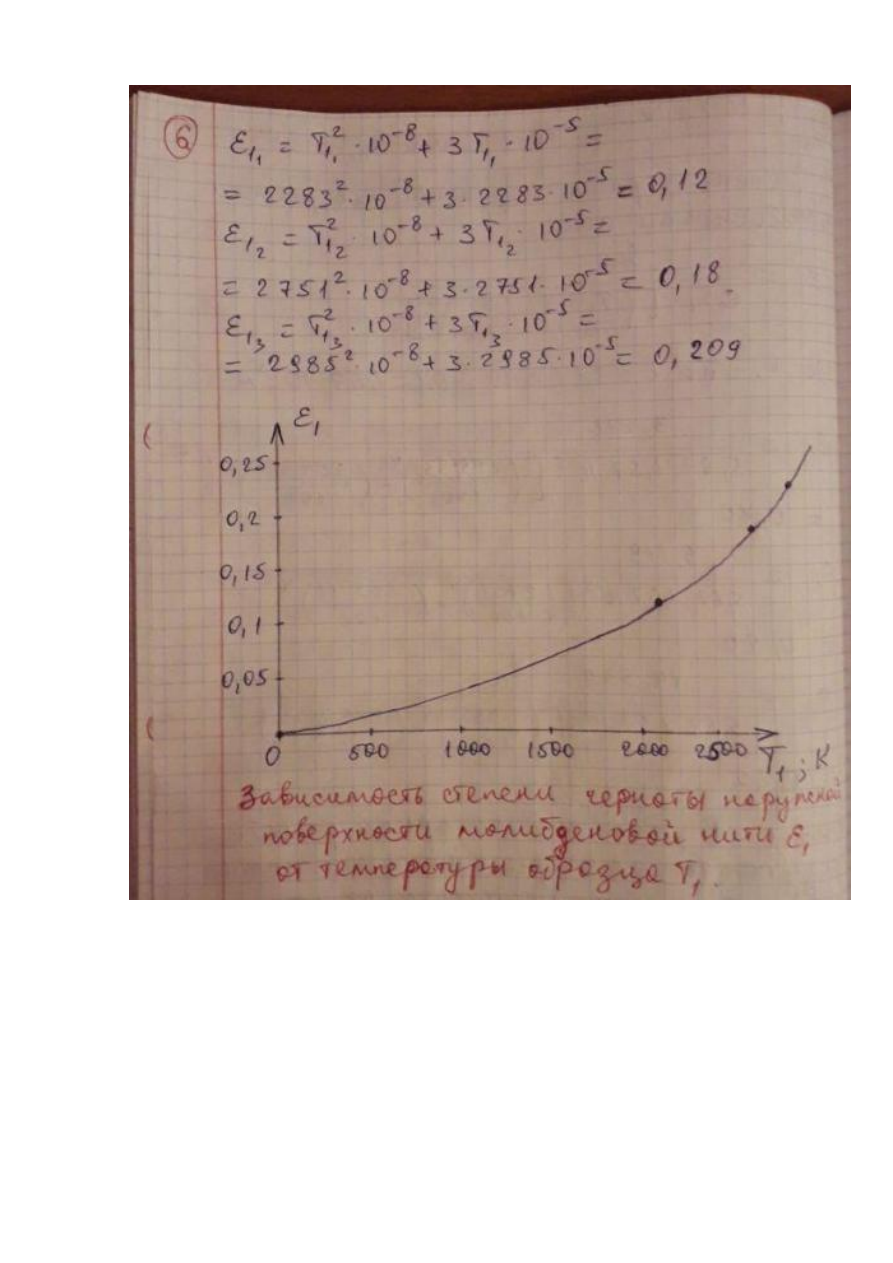 6
ε₁₁ = T₁₁² · 10⁻⁸ + 3T₁₁ · 10⁻⁵ =
= 2283² · 10⁻⁸ + 3 · 2283 · 10⁻⁵ = 0,12
ε₁₂ = T₁₂² · 10⁻⁸ + 3T₁₂ · 10⁻⁵ =
= 2751² · 10⁻⁸ + 3 · 2751 · 10⁻⁵ = 0,18
ε₁₃ = T₁₃² · 10⁻⁸ + 3T₁₃ · 10⁻⁵ =
= 2985² · 10⁻⁸ + 3 · 2985 · 10⁻⁵ = 0,209
ε₁
0,25
0,2
0,15
0,1
0,05
0 500 1000 1500 2000 2500 T₁; K
Зависимость степени черноты наружной
поверхности молибденовой нити ε₁
от температуры образца T₁.